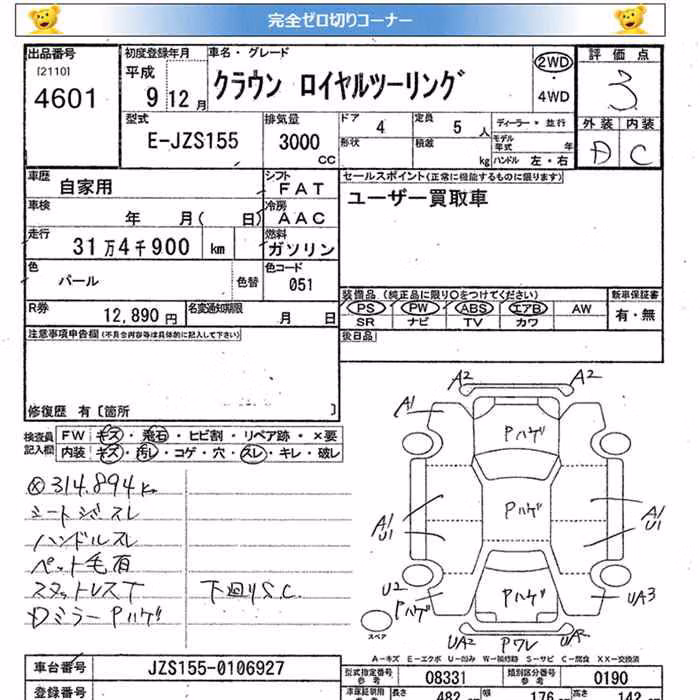 完全ゼロ切りコーナー
出品番号
[2110]
4601
初度登録年月
平成
9 12月
車名・グレード
クラウン ロイヤルツーリング
2WD
・
4WD
評価点
3
外装 内装
D C
型式
E-JZS155
排気量
3000
CC
ドア
4
定員
5 人
形状
積載
kg
ディーラー * 並行
モデル年式 年
ハンドル 左・右
車歴
自家用
シフト
FAT
車検
年 月( 日)
冷房
AAC
走行
31万4千900 km
燃料
ガソリン
色
パール
色替
色コード
051
R券
12,890 円
名変通知期限
月 日
セールスポイント(正常に機能するものに限ります)
ユーザー買取車
装備品 (純正品に限り○をつけてください)
PS PW ABS エアB AW
SR ナビ TV カワ
新車保証書
有・無
後日品
注意事項申告欄(不具合内容等は具体的に記入して下さい)
修復歴 有〔箇所 〕
検査員記入欄
FW キズ・飛石・ヒビ割・リペア跡・×要
内装 キズ・汚レ・コゲ・穴・スレ・キレ・破レ
314.894k
シートシミスレ
ハンドルスレ
ペット毛有
スタットレスT
下廻りS.C.
Dミラー Pハゲ
A2 A2
A1
Pハゲ
Pハゲ
A1
U1
A1
U1
U2
Pハゲ
Pハゲ
UA3
スペア
UA2 Pワレ UA2
A-キズ E-エクボ U-凹み W-補修跡 S-サビ C-腐食 XX-交換済
車台番号
JZS155-0106927
登録番号
型式指定番号
参考
08331
類別区分番号
参考
0190
長さ 482 幅 176 高さ 142